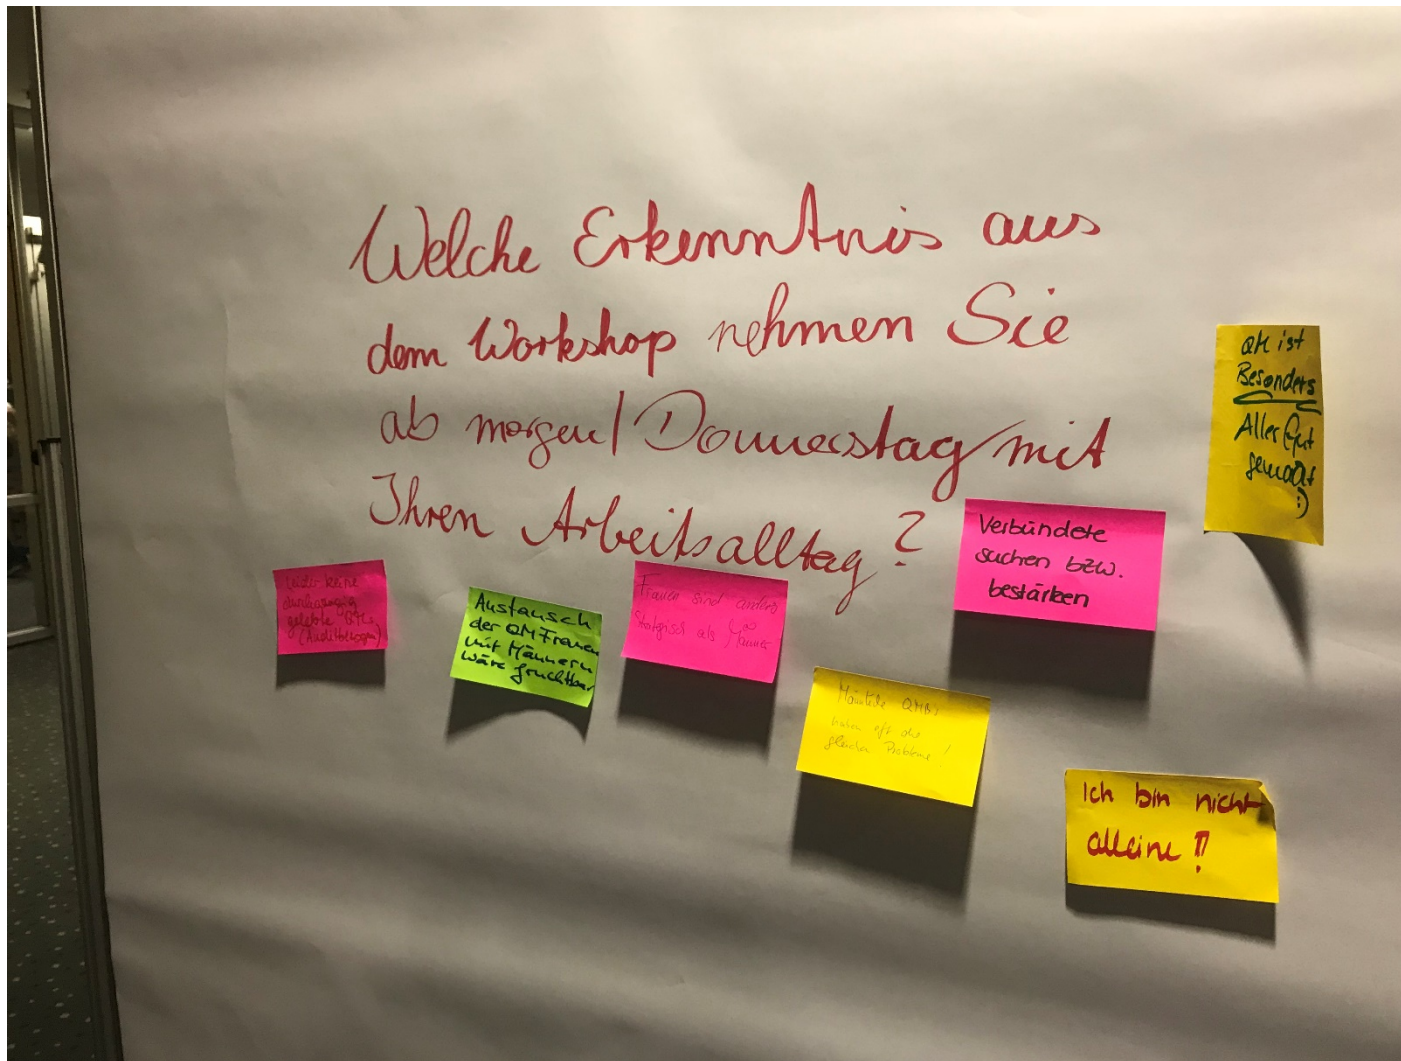 Welche Erkenntnis aus
dem Workshop nehmen Sie
ab morgen/Donnerstag mit
Ihren Arbeitsalltag?
QM ist
Besonders
Alles Gut
gemacht
:)
Verbündete
suchen bzw.
bestärken
leider keine
gelebte
Austausch
der QM Frauen
mit Männern
wäre fruchtbar
Frauen sind anders
strategisch als Männer
Männliche QMBs
haben oft die
gleichen Probleme!
Ich bin nicht
alleine!!